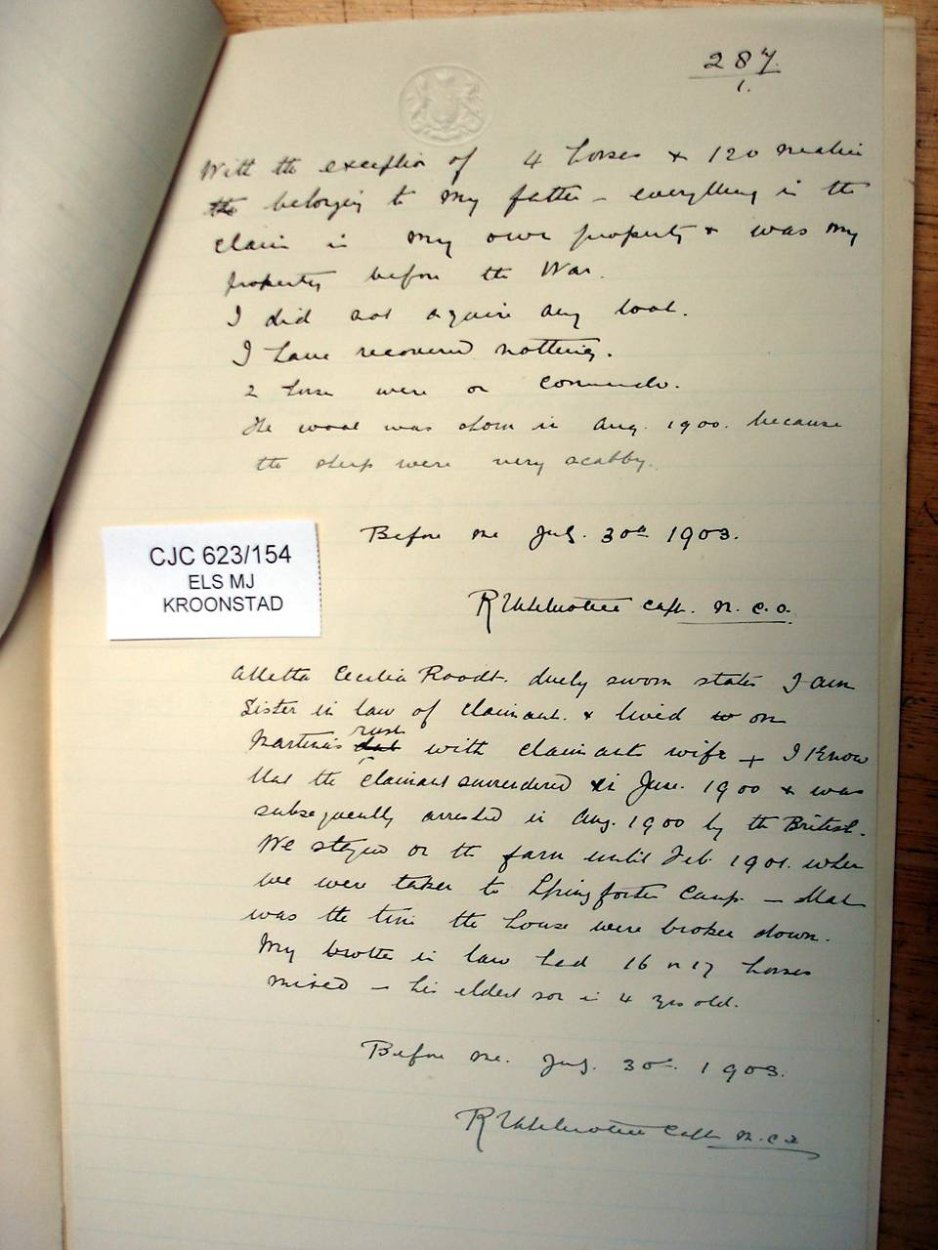 287
1.
With the exception of 4 horses & 120 mealies
the belonging to my father – everything in the
claim is my own property & was my
property before the War.
I did not acquire any loot.
I have recovered nothing.
2 horses were on commando.
The wool was shorn in Aug. 1900. because
the sheep were very scabby.
Before me July. 30th 1903.
Capt. N.C.O.
CJC 623/154
ELS MJ
KROONSTAD
Alletta Cecilia Roodt. duely sworn states I am
Sister in law of claimant. & lived on
Martinus rust with claimants wife + I know
that the claimant surrendered in June. 1900 & was
subsequently arrested in Aug. 1900 by the British.
We stayed on the farm until Feb. 1901. when
we were taken to Springfontein Camp – that
was the time the house were broken down.
My brother in law had 16 or 17 horses
mixed – his eldest son is 4 yrs old.
Before me. July. 30th. 1903.
Capt N.C.O